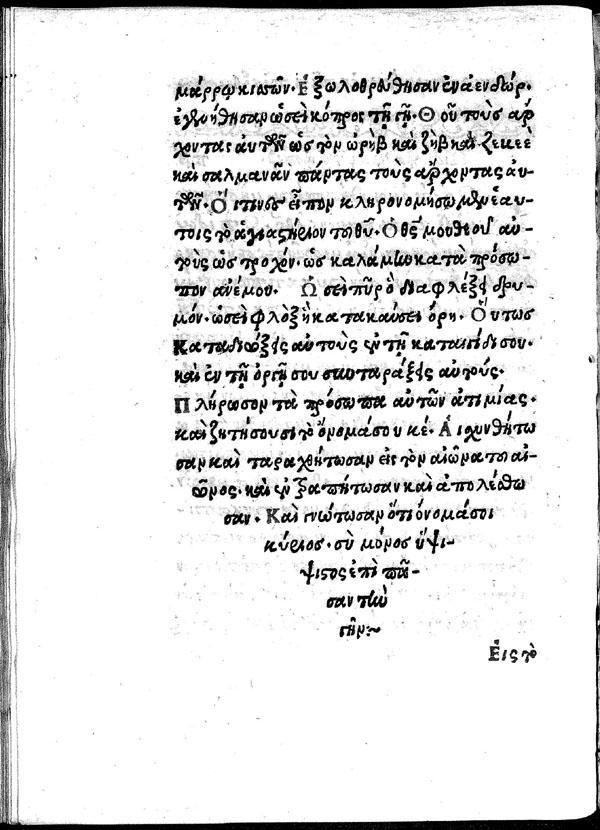 μάρρῳ κισσῶν· Ἐξωλοθρεύθησαν ἐν ἀενδώρ·
ἐγενήθησαν ὡσεὶ κόπρος τῇ γῇ· Θοῦ τοὺς ἄρ
χοντας αὐτῶν ὡς τὸν ὠρὴβ καὶ ζὴβ καὶ ζεβεὲ
καὶ σαλμανᾶν πάντας τοὺς ἄρχοντας αὐ-
τῶν· Οἵτινες εἶπον κληρονομήσωμεν ἑαυ-
τοῖς τὸ ἁγιαστήριον τοῦ θῦ· Ὁ θς μου θοῦ αὐ-
τοὺς ὡς τροχόν· ὡς καλάμην κατὰ πρόσω-
πον ἀνέμου· Ὡσεὶ πῦρ ὃ διαφλέξει δρυ-
μόν· ὡσεὶ φλὸξ ἣ κατακαύσει ὄρη· Οὕτως
καταδιώξεις αὐτοὺς ἐν τῇ καταιγίδι σου·
καὶ ἐν τῇ ὀργῇ σου συνταράξεις αὐτούς·
Πλήρωσον τὰ πρόσωπα αὐτῶν ἀτιμίας·
καὶ ζητήσουσι τὸ ὄνομά σου κέ· Αἰσχυνθήτω
σαν καὶ ταραχθήτωσαν εἰς τὸν αἰῶνα τοῦ αἰ-
ῶνος· καὶ ἐντραπήτωσαν καὶ ἀπολέσθω
σαν· Καὶ γνώτωσαν ὅτι ὄνομά σοι
κύριος· σὺ μόνος ὕψι-
ψιστος ἐπὶ πᾶ-
σαν τὴν
γῆν:~
Εἰς τὸ